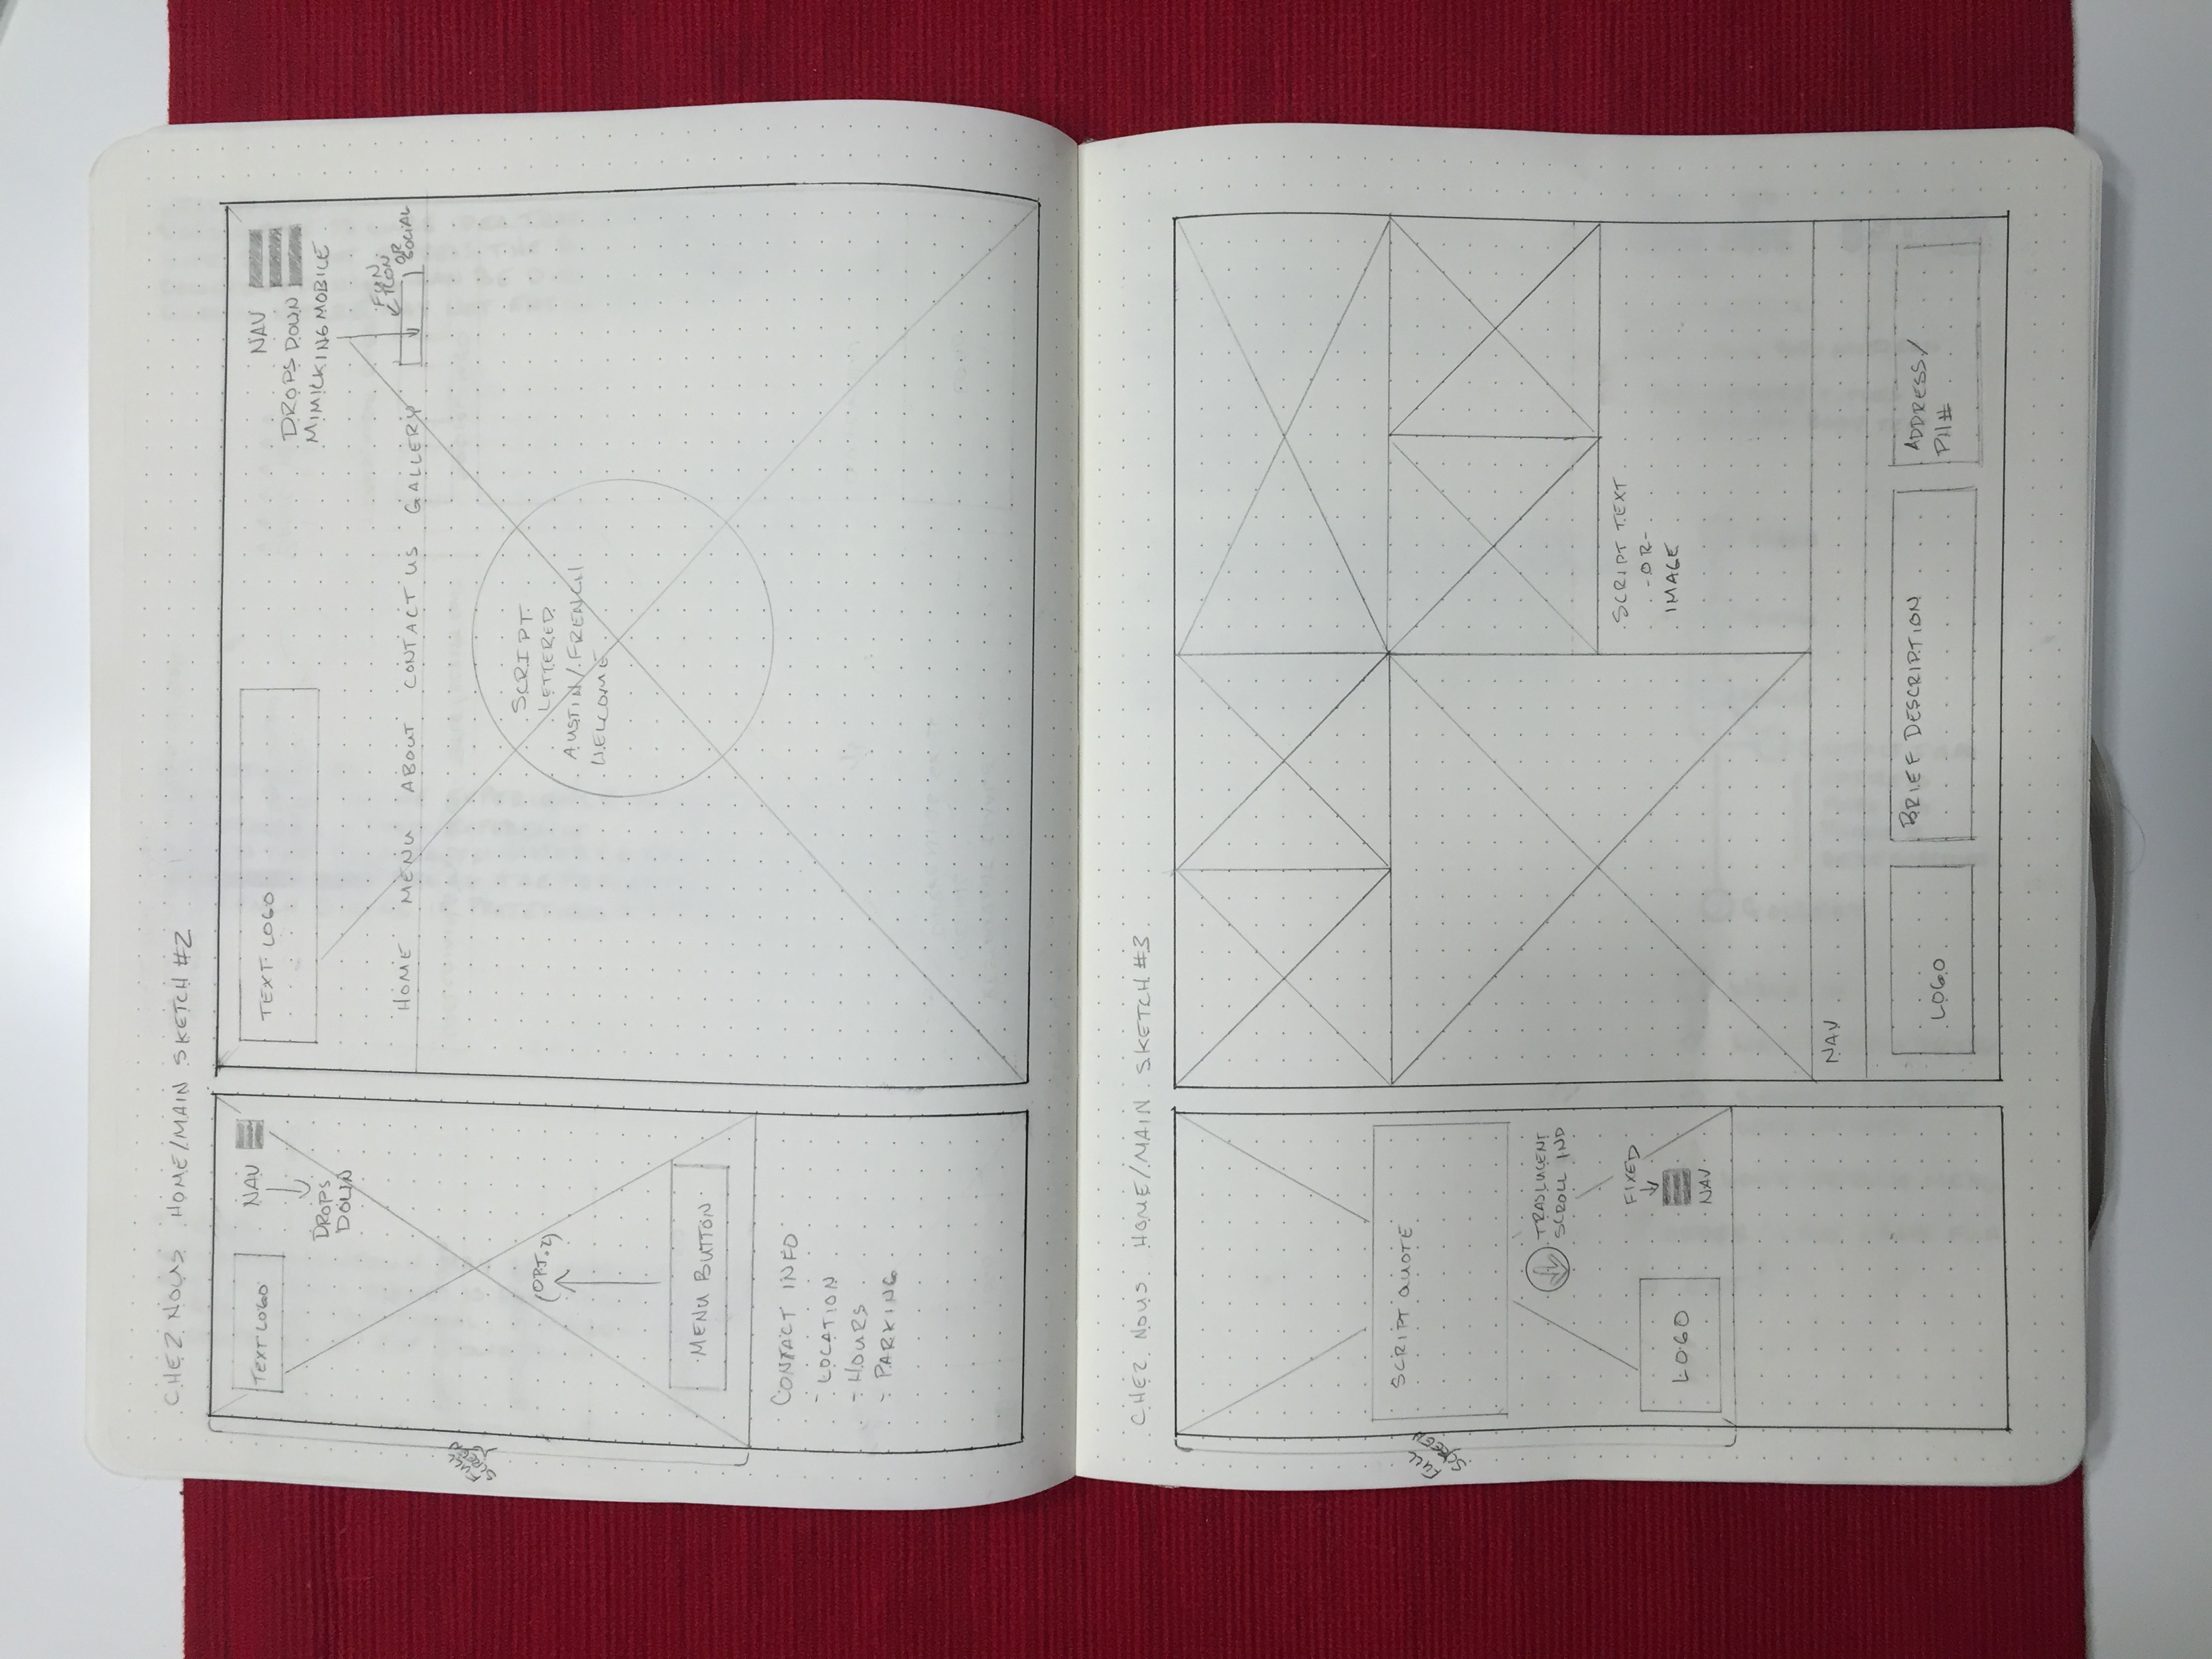 CHEZ NOUS HOME/MAIN SKETCH #2
TEXT LOGO
NAV
DROPS
DOWN
FULL
SCREEN
(OPT. 2)
MENU BUTTON
CONTACT INFO
- LOCATION
- HOURS
- PARKING
TEXT LOGO
NAV
DROPS DOWN
MIMICKING MOBILE
FUN
ICON
OR
SOCIAL
HOME MENU ABOUT CONTACT US GALLERY
SCRIPT
LETTERED
AUSTIN/FRENCH
WELCOME
CHEZ NOUS HOME/MAIN SKETCH #3
FULL
SCREEN
SCRIPT QUOTE
TRASLUCENT
SCROLL IND
FIXED
LOGO
NAV
SCRIPT TEXT
-OR-
IMAGE
NAV
LOGO
BRIEF DESCRIPTION
ADDRESS/
PH#